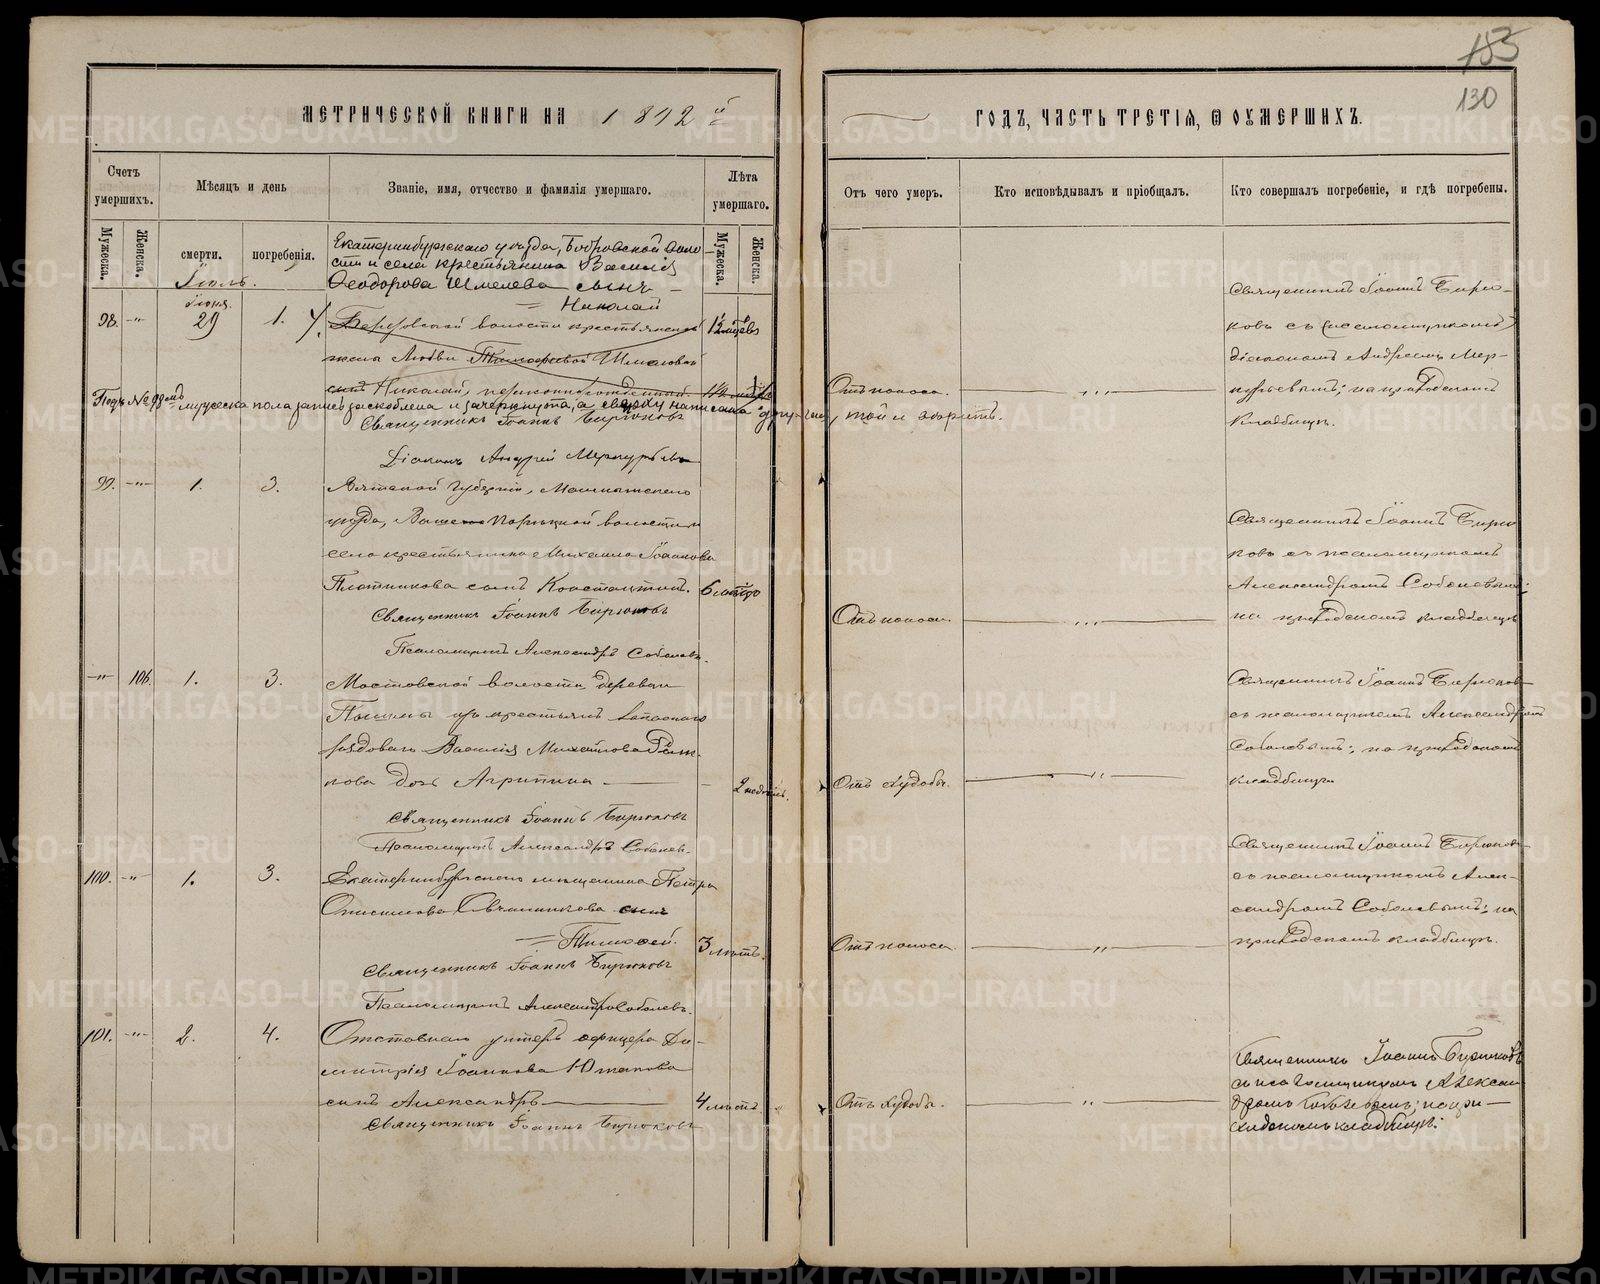 155
130
МЕТРИЧЕСКОЙ КНИГИ НА 1892 й
ГОДЪ, ЧАСТЬ ТРЕТІЯ, Ѿ ОУМЕРШИХЪ.
Счетъ умершихъ.
Мѣсяцъ и день
Званіе, имя, отчество и фамилія умершаго.
Лѣта умершаго.
Отъ чего умеръ.
Кто исповѣдывалъ и пріобщалъ.
Кто совершалъ погребеніе, и гдѣ погребены.
Мужеска.
Женска.
смерти.
погребенія.
Мужеска.
Женска.
Іюль.
Екатеринбургскаго уѣзда, Бобровской воло
сти и села крестьянина Василія
Ѳеодорова Шмелева сынъ
Николай
98. -"- Іюня 29 1.
волости крестьянской
жены Любви Тимофеевой Шмелевой
сынъ Николай, незаконнорожденный.
Отъ поноса.
Священникъ Іоаннъ Бирю-
ковъ съ
діакономъ Андреемъ Мер-
курьевымъ; на приходскомъ
кладбищѣ.
Подъ № 98мъ мужеска пола запись заскоблена и зачеркнута, а сверху написана другая, той и вѣрить.
Священникъ Іоаннъ Бирюковъ
Діаконъ Андрей Меркурьевъ
99. -"- 1. 3.
Вятской губерніи, Малмыжскаго
уѣзда, волости и
села крестьянина Михаила Іоаннова
Плотникова сынъ Константинъ.
Отъ поноса.
Священникъ Іоаннъ Бирю
ковъ съ псаломщикомъ
Александромъ Соболевымъ;
на приходскомъ кладбищѣ
Священникъ Іоаннъ Бирюковъ
Псаломщикъ Александръ Соболевъ.
-"- 106. 1. 3.
Мостовской волости, деревни
изъ крестьянъ запаснаго
рядоваго Василія Михайлова
кова дочь Агрипина
2 недѣль.
Отъ худобы.
Священникъ Іоаннъ Бирюковъ
съ псаломщикомъ Александромъ
Соболевымъ; на приходскомъ
кладбищѣ
Священникъ Іоаннъ Бирюковъ
Псаломщикъ Александръ Соболевъ.
100. -"- 1. 3.
Екатеринбургскаго мѣщанина Петра
Онисимова Овчинникова сынъ
Тимоѳей.
3 лѣтъ.
Отъ поноса.
Священникъ Іоаннъ Бирюковъ
съ псаломщикомъ Алек-
сандромъ Соболевымъ; на
приходскомъ кладбищѣ.
Священникъ Іоаннъ Бирюковъ
Псаломщикъ Александръ Соболевъ.
101. -"- 2. 4.
Отставнаго унтеръ офицера Ди-
митрія Іоаннова Южакова
сынъ Александръ
4 лѣтъ
Отъ худобы.
Священникъ Іоаннъ Бирюковъ
съ псаломщикомъ Алексан-
дромъ Соболевымъ; на при-
ходскомъ кладбищѣ.
Священникъ Іоаннъ Бирюковъ
METRIKI.GASO-URAL.RU